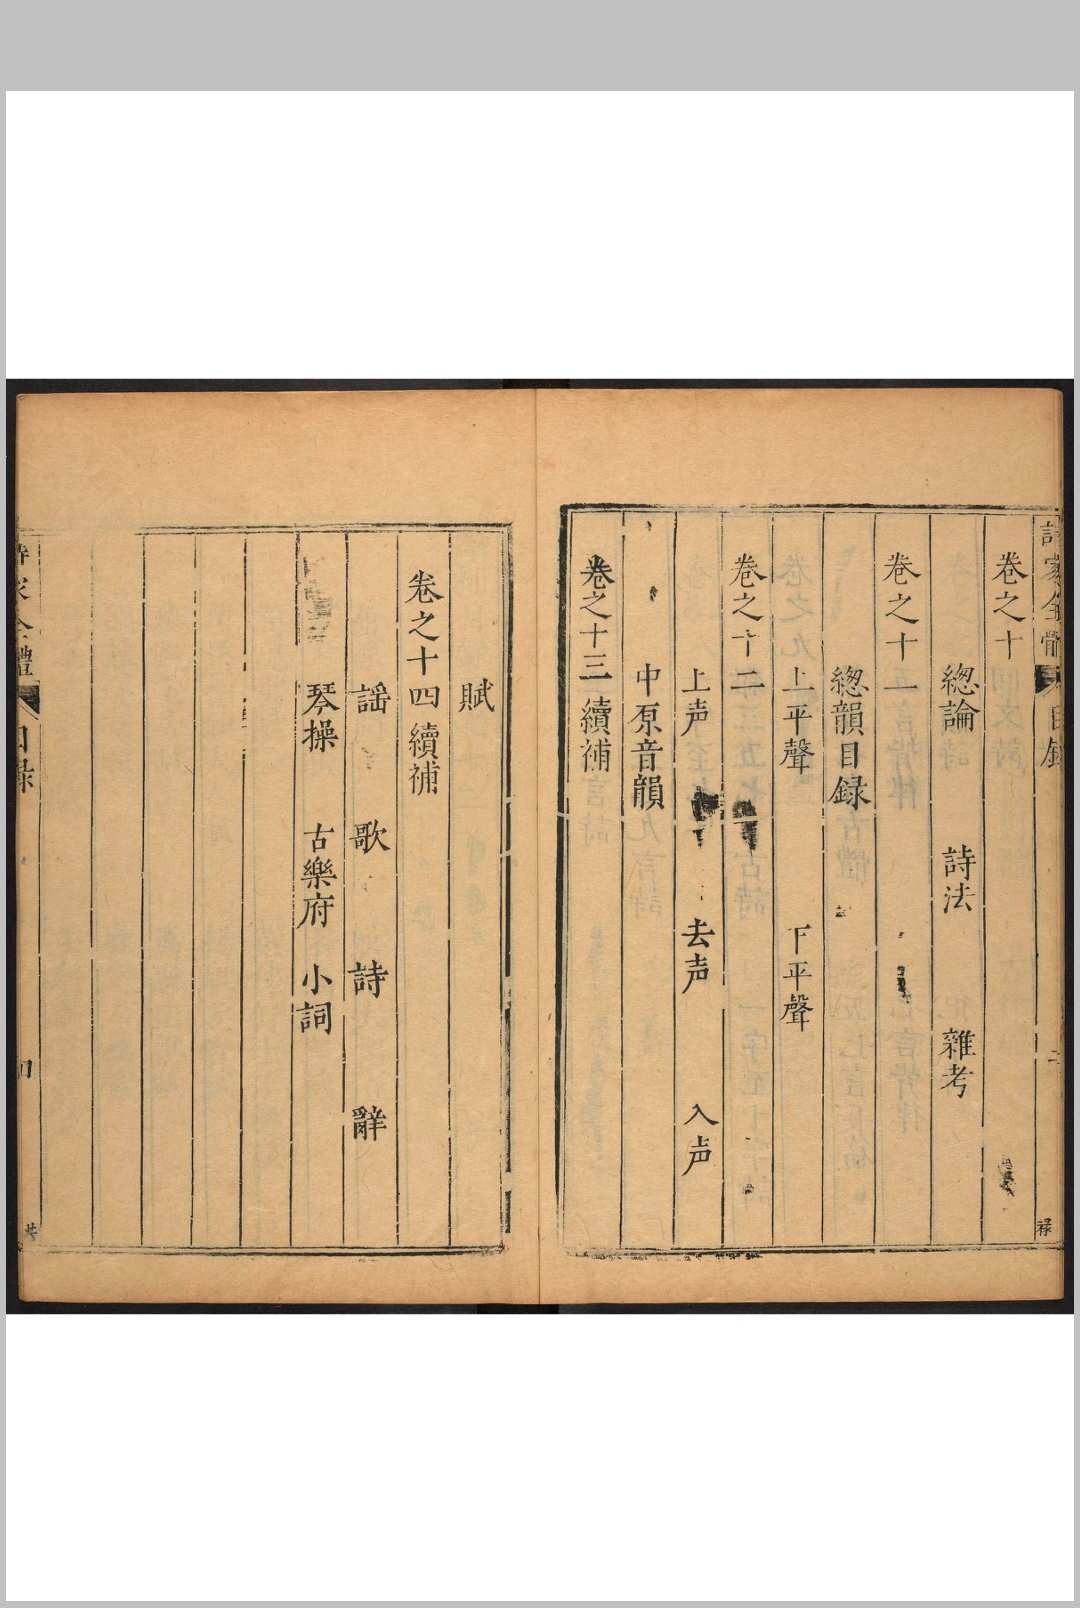 卷之十
總論 詩法 雜考
卷之十一
總韻目録
上平聲 下平聲
卷之十二
上声 去声 入声
中原音韻
卷之十三續補
賦
卷之十四續補
謡 歌 詩 辭
琴操 古樂府 小詞